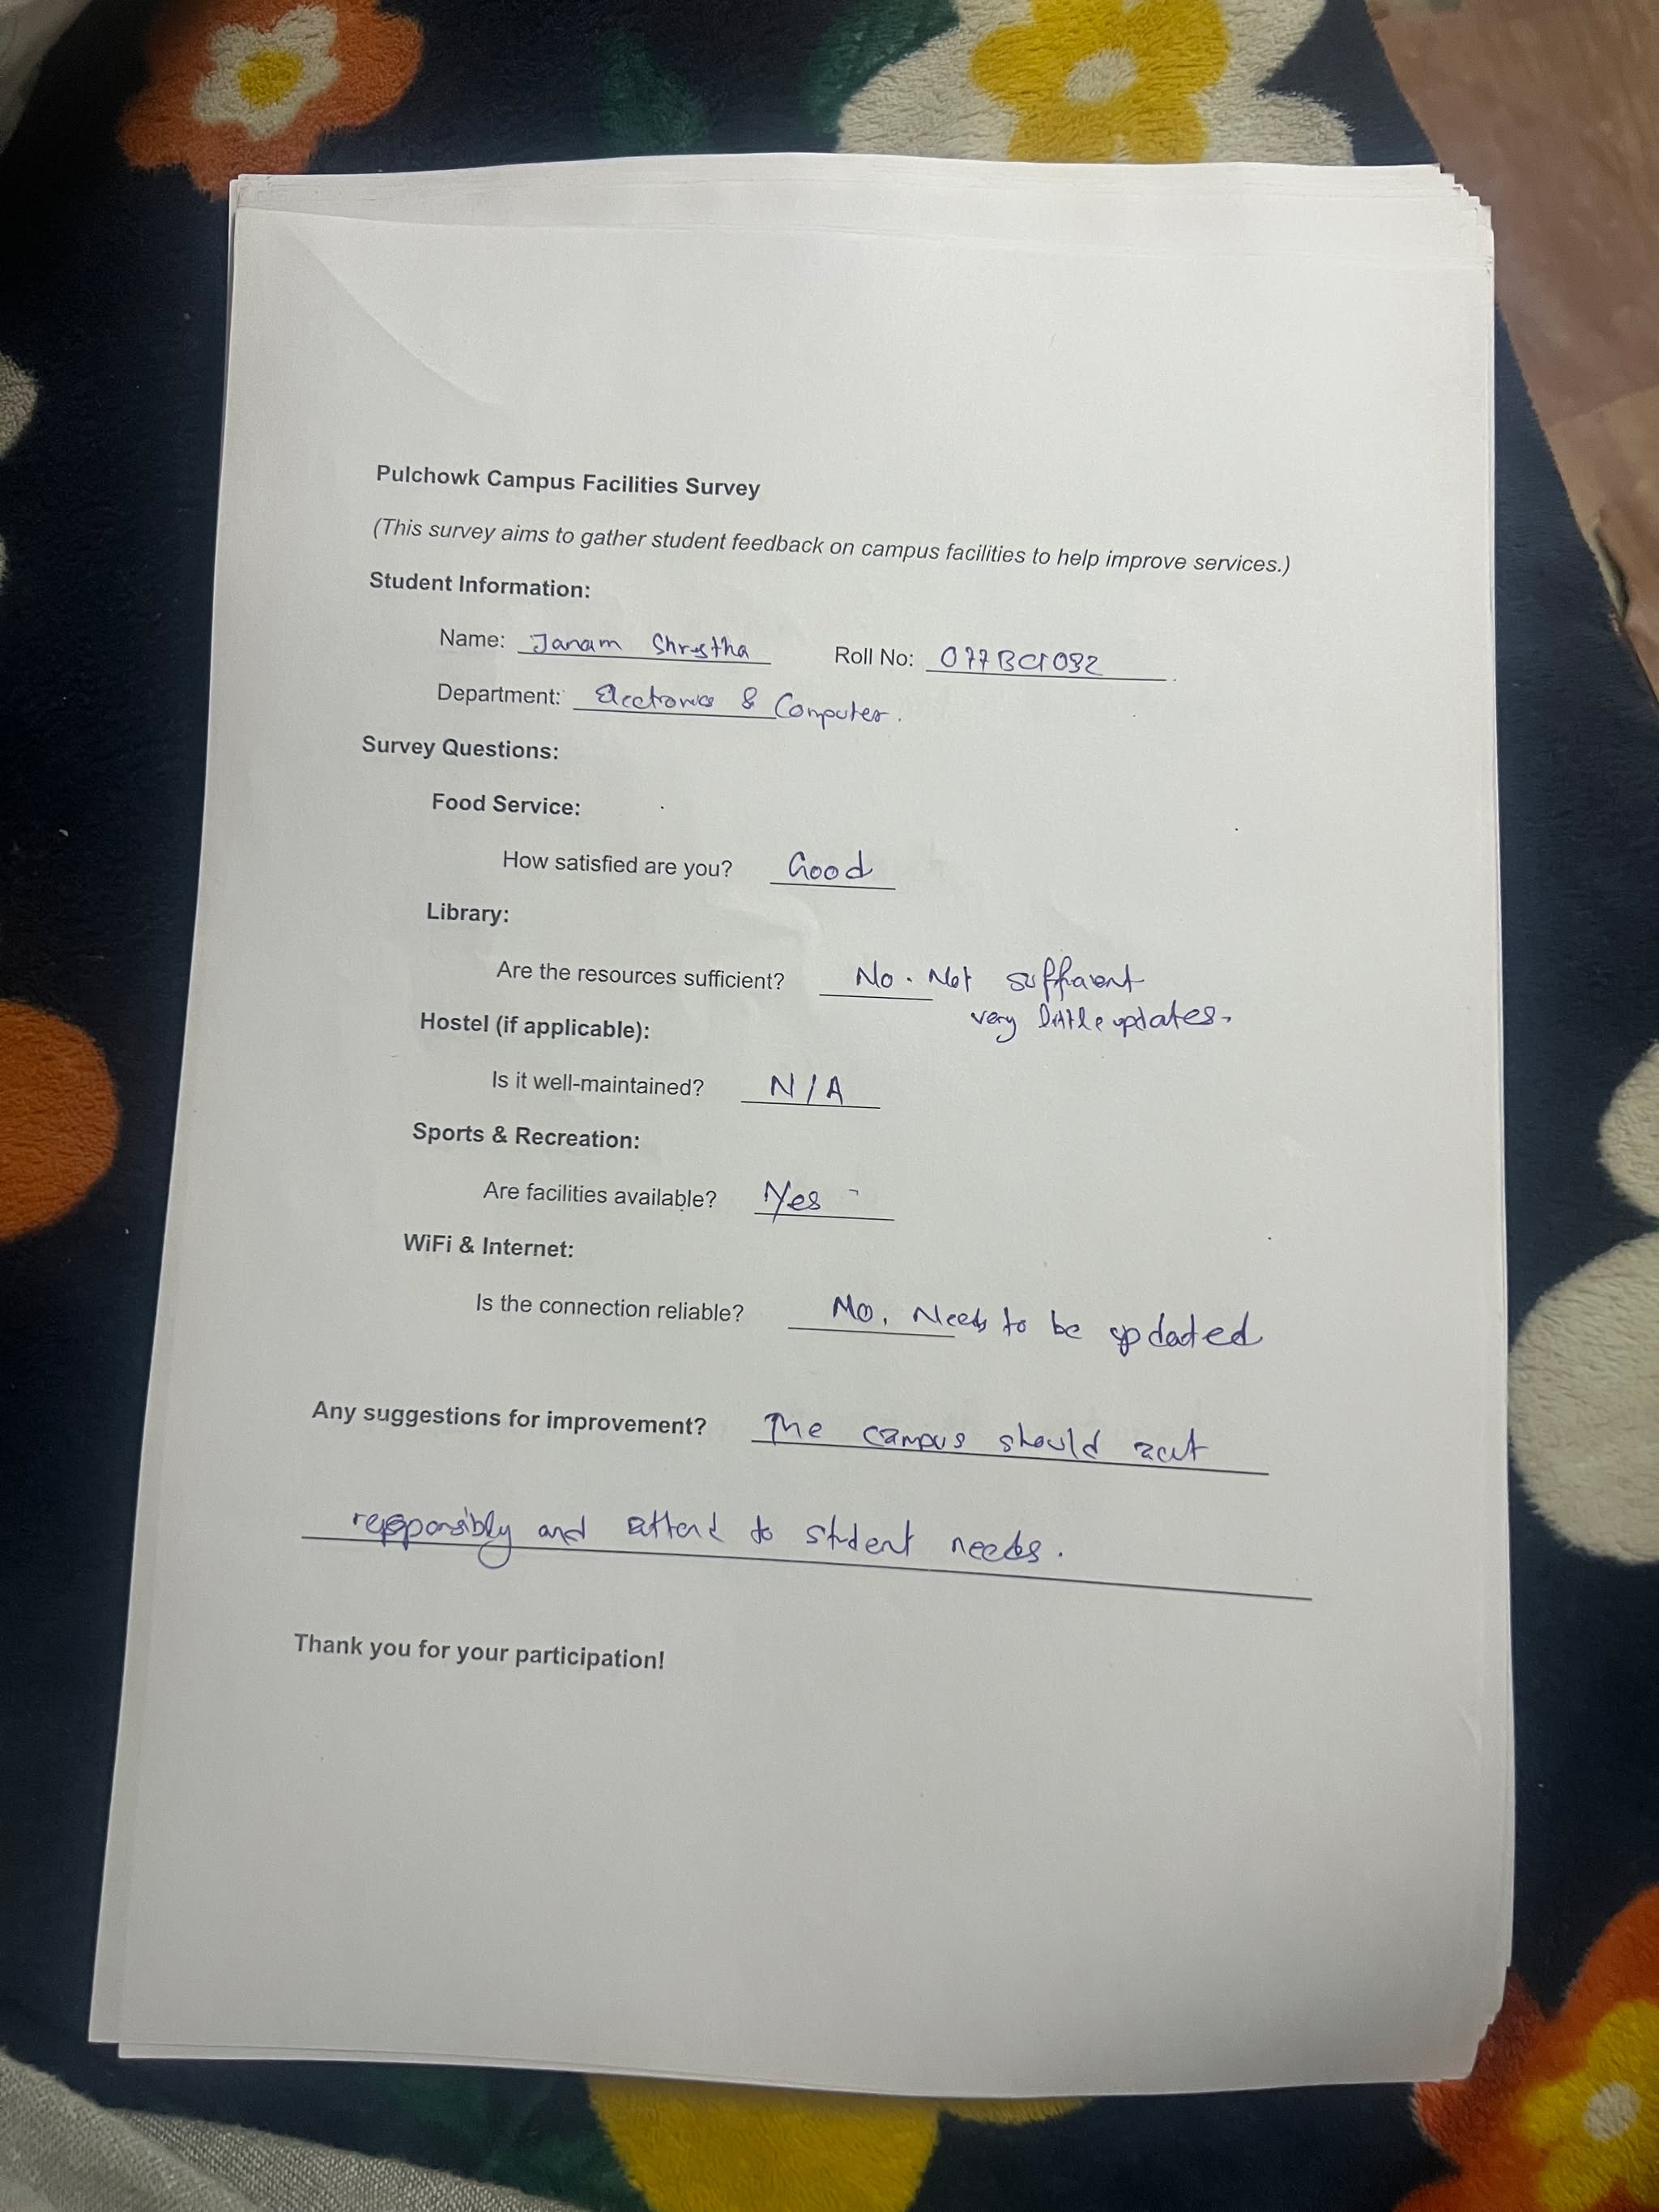 Pulchowk Campus Facilities Survey
(This survey aims to gather student feedback on campus facilities to help improve services.)
Student Information:
Name: Janam Shrestha Roll No: 077BCT032
Department: Electronics & Computer.
Survey Questions:
Food Service:
How satisfied are you? Good
Library:
Are the resources sufficient? No. Not sufficient
very little updates.
Hostel (if applicable):
Is it well-maintained? N/A
Sports & Recreation:
Are facilities available? Yes
WiFi & Internet:
Is the connection reliable? No, Needs to be updated
Any suggestions for improvement? The campus should act
responsibly and attend to student needs.
Thank you for your participation!